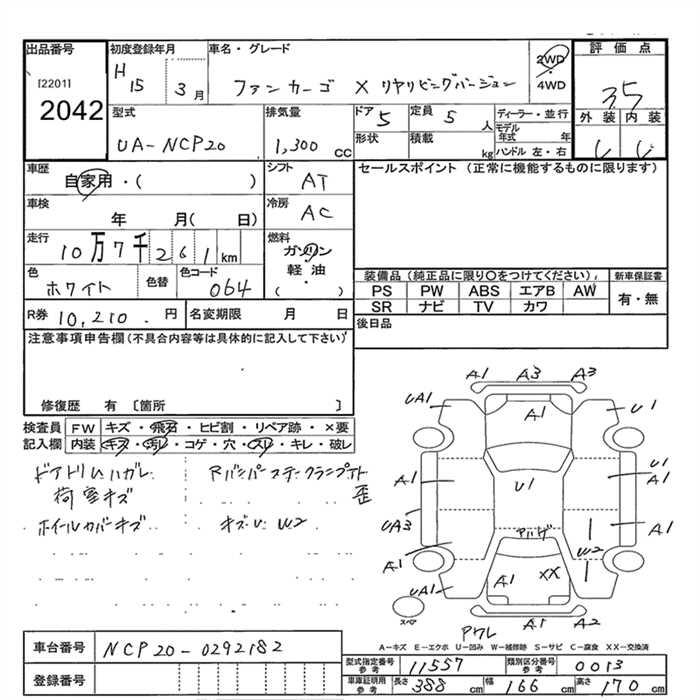 出品番号
[2201]
2042
初度登録年月
H15 3月
車名・グレード
ファンカーゴ X リヤリビングバージョン
2WD
・
4WD
評価点
3.5
外装 内装
型式
UA-NCP20
排気量
1,300 CC
ドア 5
形状
定員 5 人
積載 kg
ディーラー・並行
モデル年式 年
ハンドル 左・右
車歴
自家用・( )
シフト
AT
セールスポイント（正常に機能するものに限ります）
車検
年 月( 日)
冷房
AC
走行
10万7千261km
燃料
ガソリン
・
軽油
( )
色
ホワイト
色替
色コード
064
装備品（純正品に限り○をつけてください）.
PS PW ABS エアB AW
SR ナビ TV カワ
新車保証書
有・無
R券 10,210.円
名変期限 月 日
後日品
注意事項申告欄（不具合内容等は具体的に記入して下さい）
修復歴 有 〔箇所 〕
検査員記入欄
FW キズ・飛石・ヒビ割・リペア跡・×要
内装 キズ・汚レ・コゲ・穴・スレ・キレ・破レ
ドアトリムハガレ
荷室キズ
ホイールカバーキズ
キズU W2
歪
A1 A3 A3
UA1 A1 U1
A1 U1 U1 A1
UA3 A1
W2
A1
UA1 A1 XX
スペア
A1 A2
A-キズ E-エクボ U-凹み W-補修跡 S-サビ C-腐食 XX-交換済
車台番号 NCP20-0292182
型式指定番号 参考 11557
類別区分番号 参考 0013
登録番号
車庫証明用 参考 長さ 388 cm 幅 166 cm 高さ 170 cm